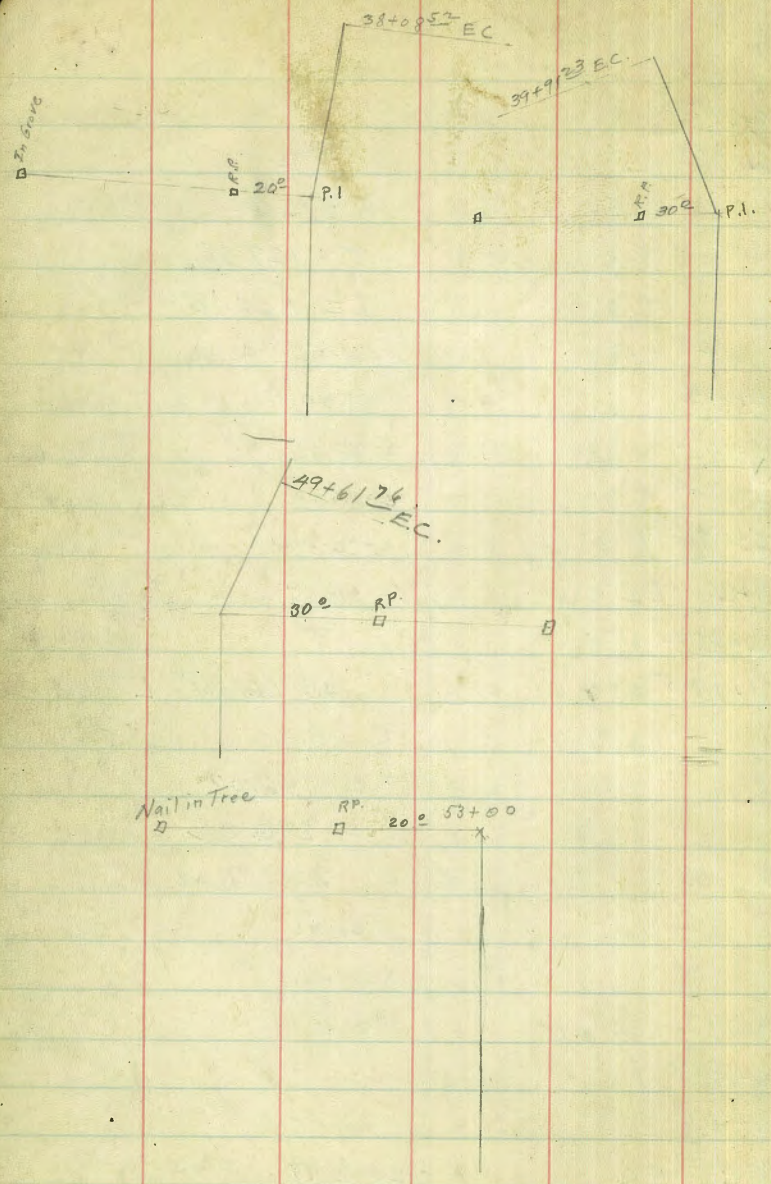 38+08 52 E C
39+91 23 E.C.
In Grove
R.P.
20º
P.I
R.P.
30º
P.I.
49+61 74
E.C.
30º
RP.
Nail in Tree
RP.
20º
53+00